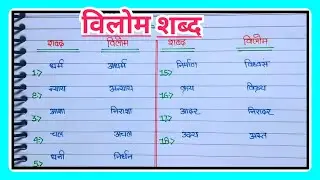 विलोम शब्द
शब्द विलोम शब्द विलोम
1.> धर्म अधर्म
2.> न्याय अन्याय
3.> आशा निराशा
4.> चल अचल
5.> धनी निर्धन
15.> निर्माण विध्वंस
16.> क्रय विक्रय
17.> आदर निरादर
18.> उदय अस्त